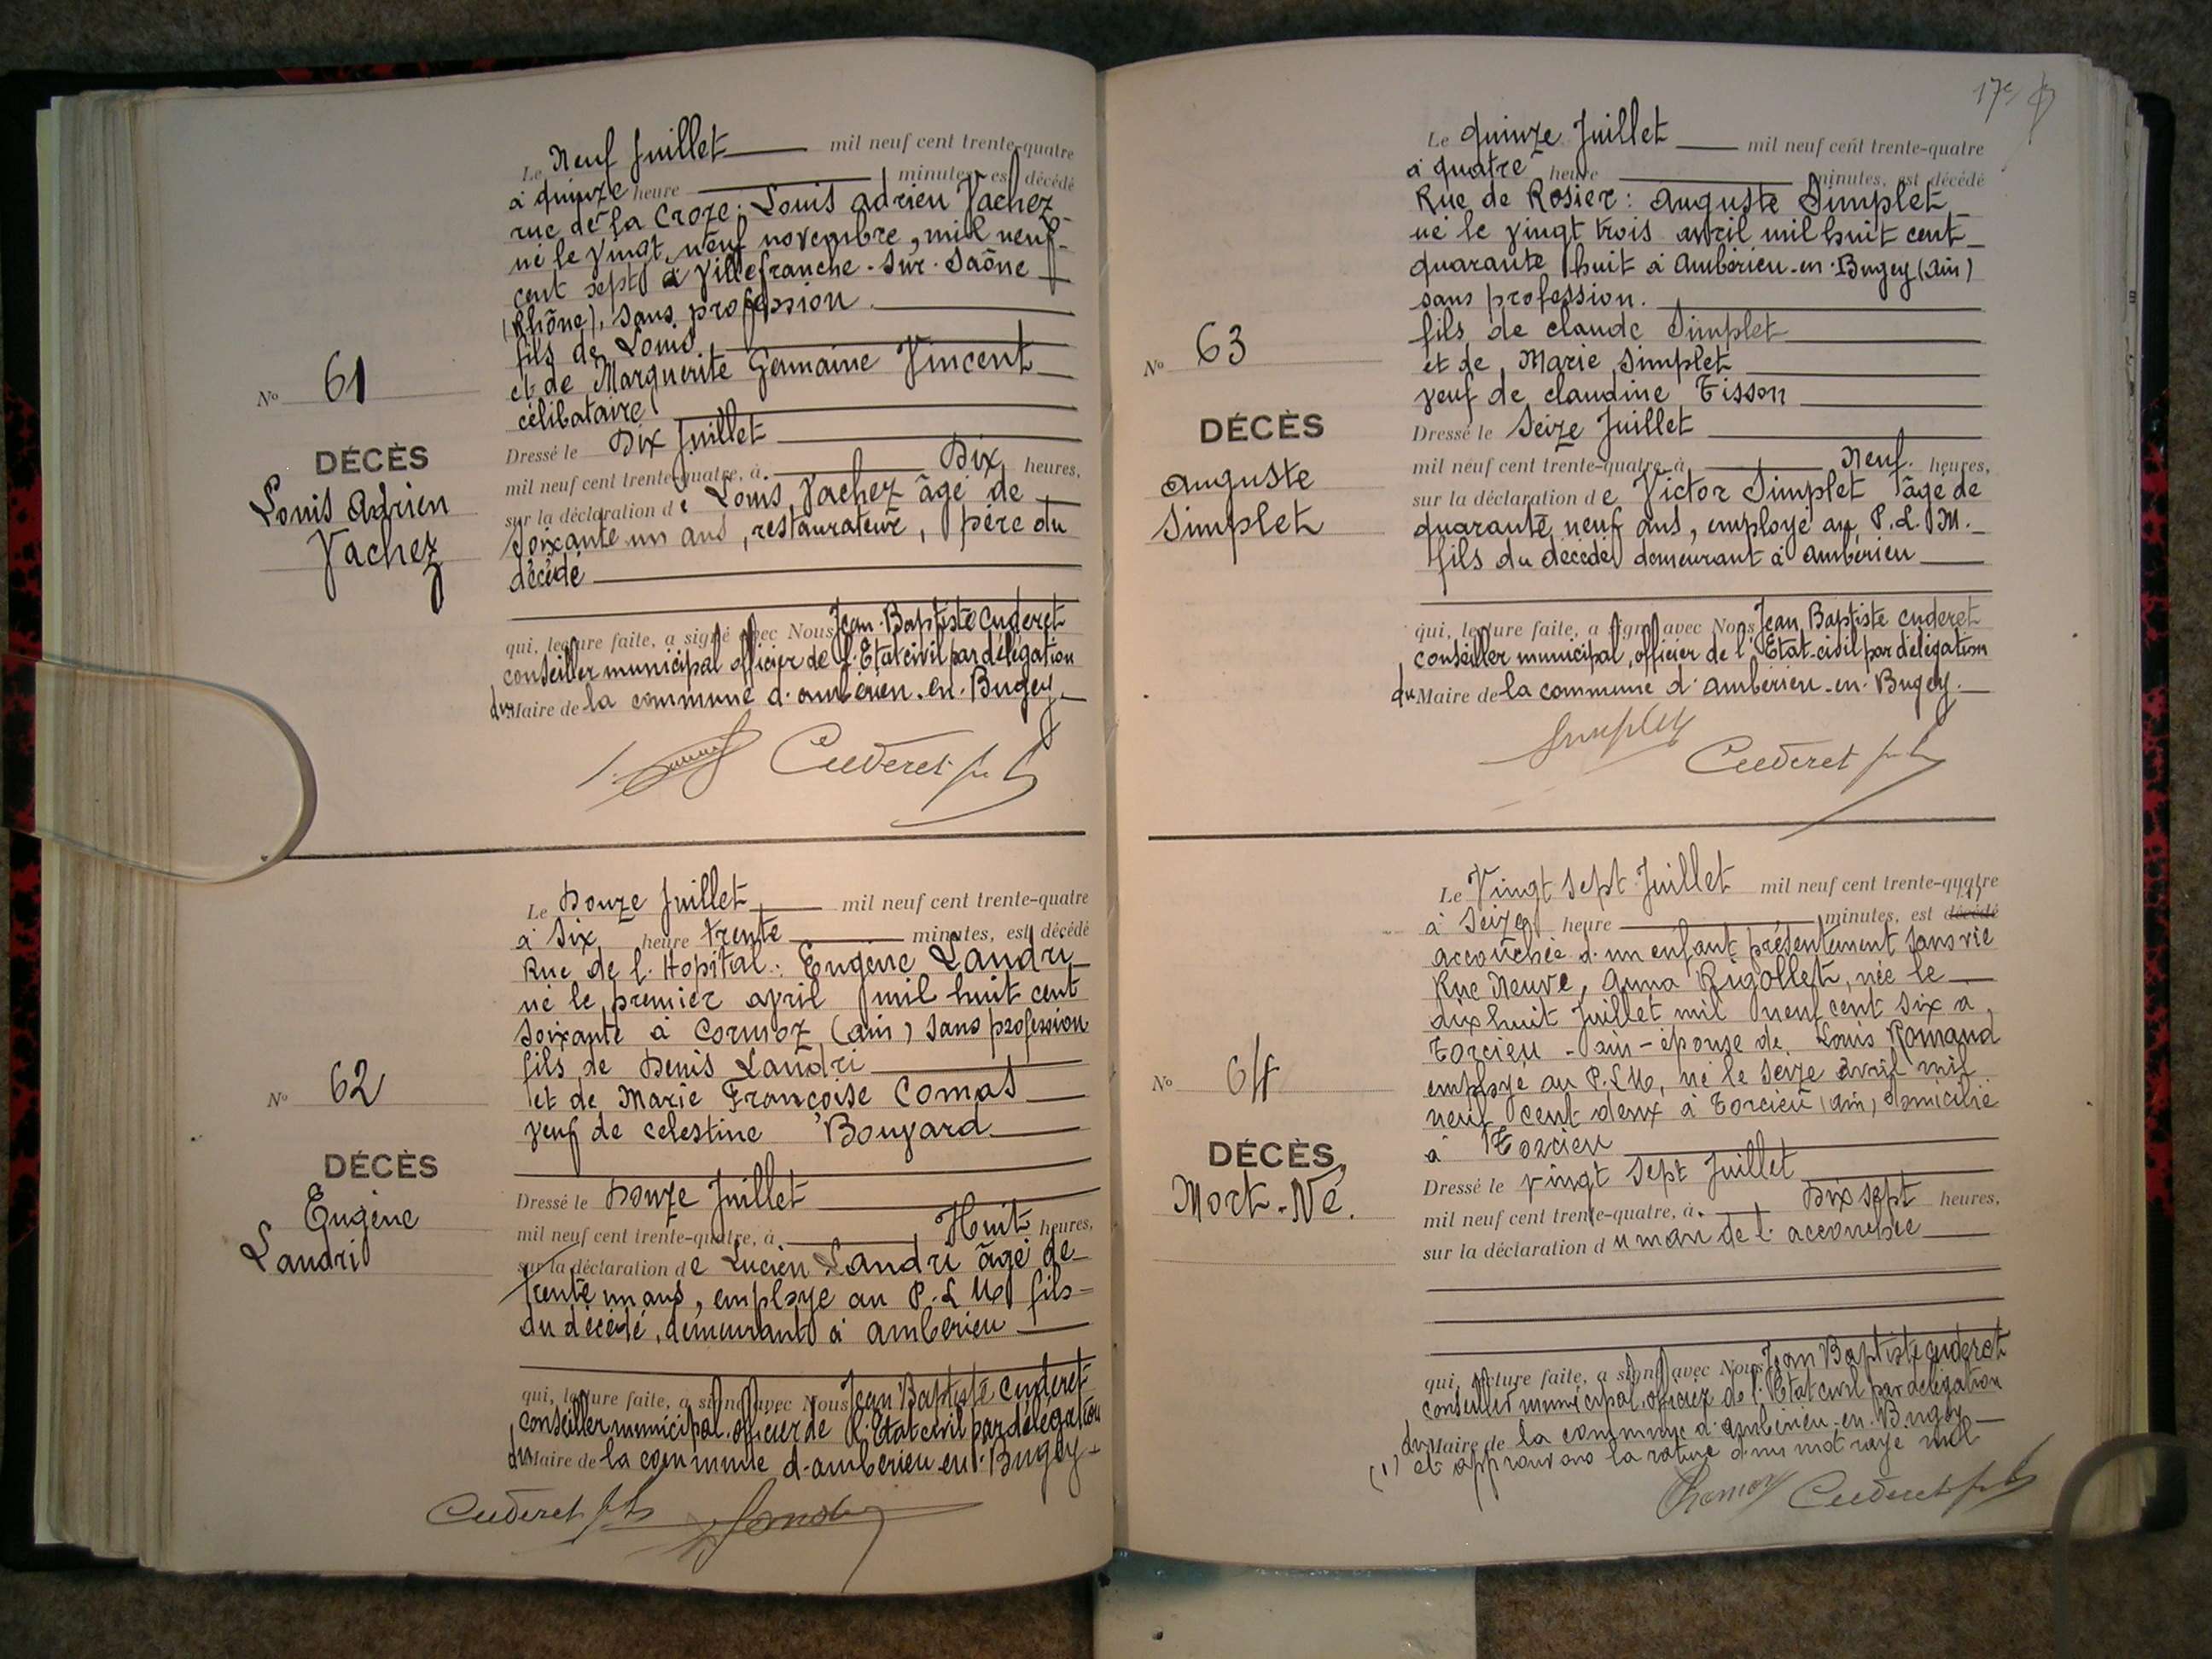 Le Neuf Juillet mil neuf cent trente-quatre
à quinze heure minutes, est décédé
rue de la Croze : Louis Adrien Vachez
né le vingt neuf novembre, mil neuf
cent sept à Villefranche-sur-Saône
(Rhône), sans profession.
fils de Louis
et de Marguerite Germaine Vincent
célibataire
No 61
DÉCÈS
Louis Adrien
Vachez
Dressé le Dix Juillet
mil neuf cent trente-quatre, à Dix heures,
sur la déclaration de Louis Vachez âgé de
soixante un ans, restaurateur, père du
décédé
qui, lecture faite, a signé avec Nous Jean-Baptiste Cuderet
conseiller municipal officier de l'Etat civil par délégation
du Maire de la commune d'ambérieu-en-Bugey
Cuderet
Le Douze Juillet mil neuf cent trente-quatre
à Six heure trente minutes, est décédé
Rue de l'Hopital : Eugène Landri
né le premier avril mil huit cent
soixante à Cormoz (ain) sans profession
fils de Denis Landri
et de Marie Françoise Comas
veuf de celestine Bouvard
No 62
DÉCÈS
Eugène
Landri
Dressé le Douze Juillet
mil neuf cent trente-quatre, à Huit heures,
sur la déclaration de Lucien Landri âgé de
trente un ans, employé au P.L.M fils
du décédé, demeurant à ambérieu
qui, lecture faite, a signé avec Nous Jean Baptiste Cuderet
conseiller municipal, officier de l'Etat civil par délégation
du Maire de la commune d'ambérieu-en-Bugey
Cuderet
17e
Le quinze Juillet mil neuf cent trente-quatre
à quatre heure minutes, est décédé
Rue de Rosier : Auguste Simplet
né le vingt trois avril mil huit cent
quarante huit à Ambérieu-en-Bugey (ain)
sans profession.
fils de claude Simplet
et de Marie Simplet
veuf de claudine Tisson
No 63
DÉCÈS
Auguste
Simplet
Dressé le Seize Juillet
mil neuf cent trente-quatre, à Neuf heures,
sur la déclaration de Victor Simplet âgé de
quarante neuf ans, employé au P.L.M.
fils du décédé demeurant à ambérieu
qui, lecture faite, a signé avec Nous Jean Baptiste Cuderet
conseiller municipal, officier de l'Etat-civil par délégation
du Maire de la commune d'ambérieu-en-Bugey.
Simplet
Cuderet
Le Vingt Sept Juillet mil neuf cent trente-quatre
à Seize heure minutes, est décédé (1)
accouchée d'un enfant présentement sans vie
Rue Neuve, Anna Rigollet, née le
dix huit Juillet mil neuf cent six à
Torcieu - ain - épouse de Louis Romand
employé au P.L.M, né le seize avril mil
neuf cent deux à Torcieu (ain) domicilié
à Torcieu
No 64
DÉCÈS
Mort-Né.
Dressé le vingt sept Juillet
mil neuf cent trente-quatre, à Dix sept heures,
sur la déclaration du mari de l'accouchée
qui, lecture faite, a signé avec Nous Jean Baptiste Cuderet
conseiller municipal, officier de l'Etat civil par délégation
du Maire de la commune d'ambérieu-en-Bugey
(1) et approuvons la rature d'un mot rayé nul
Cuderet